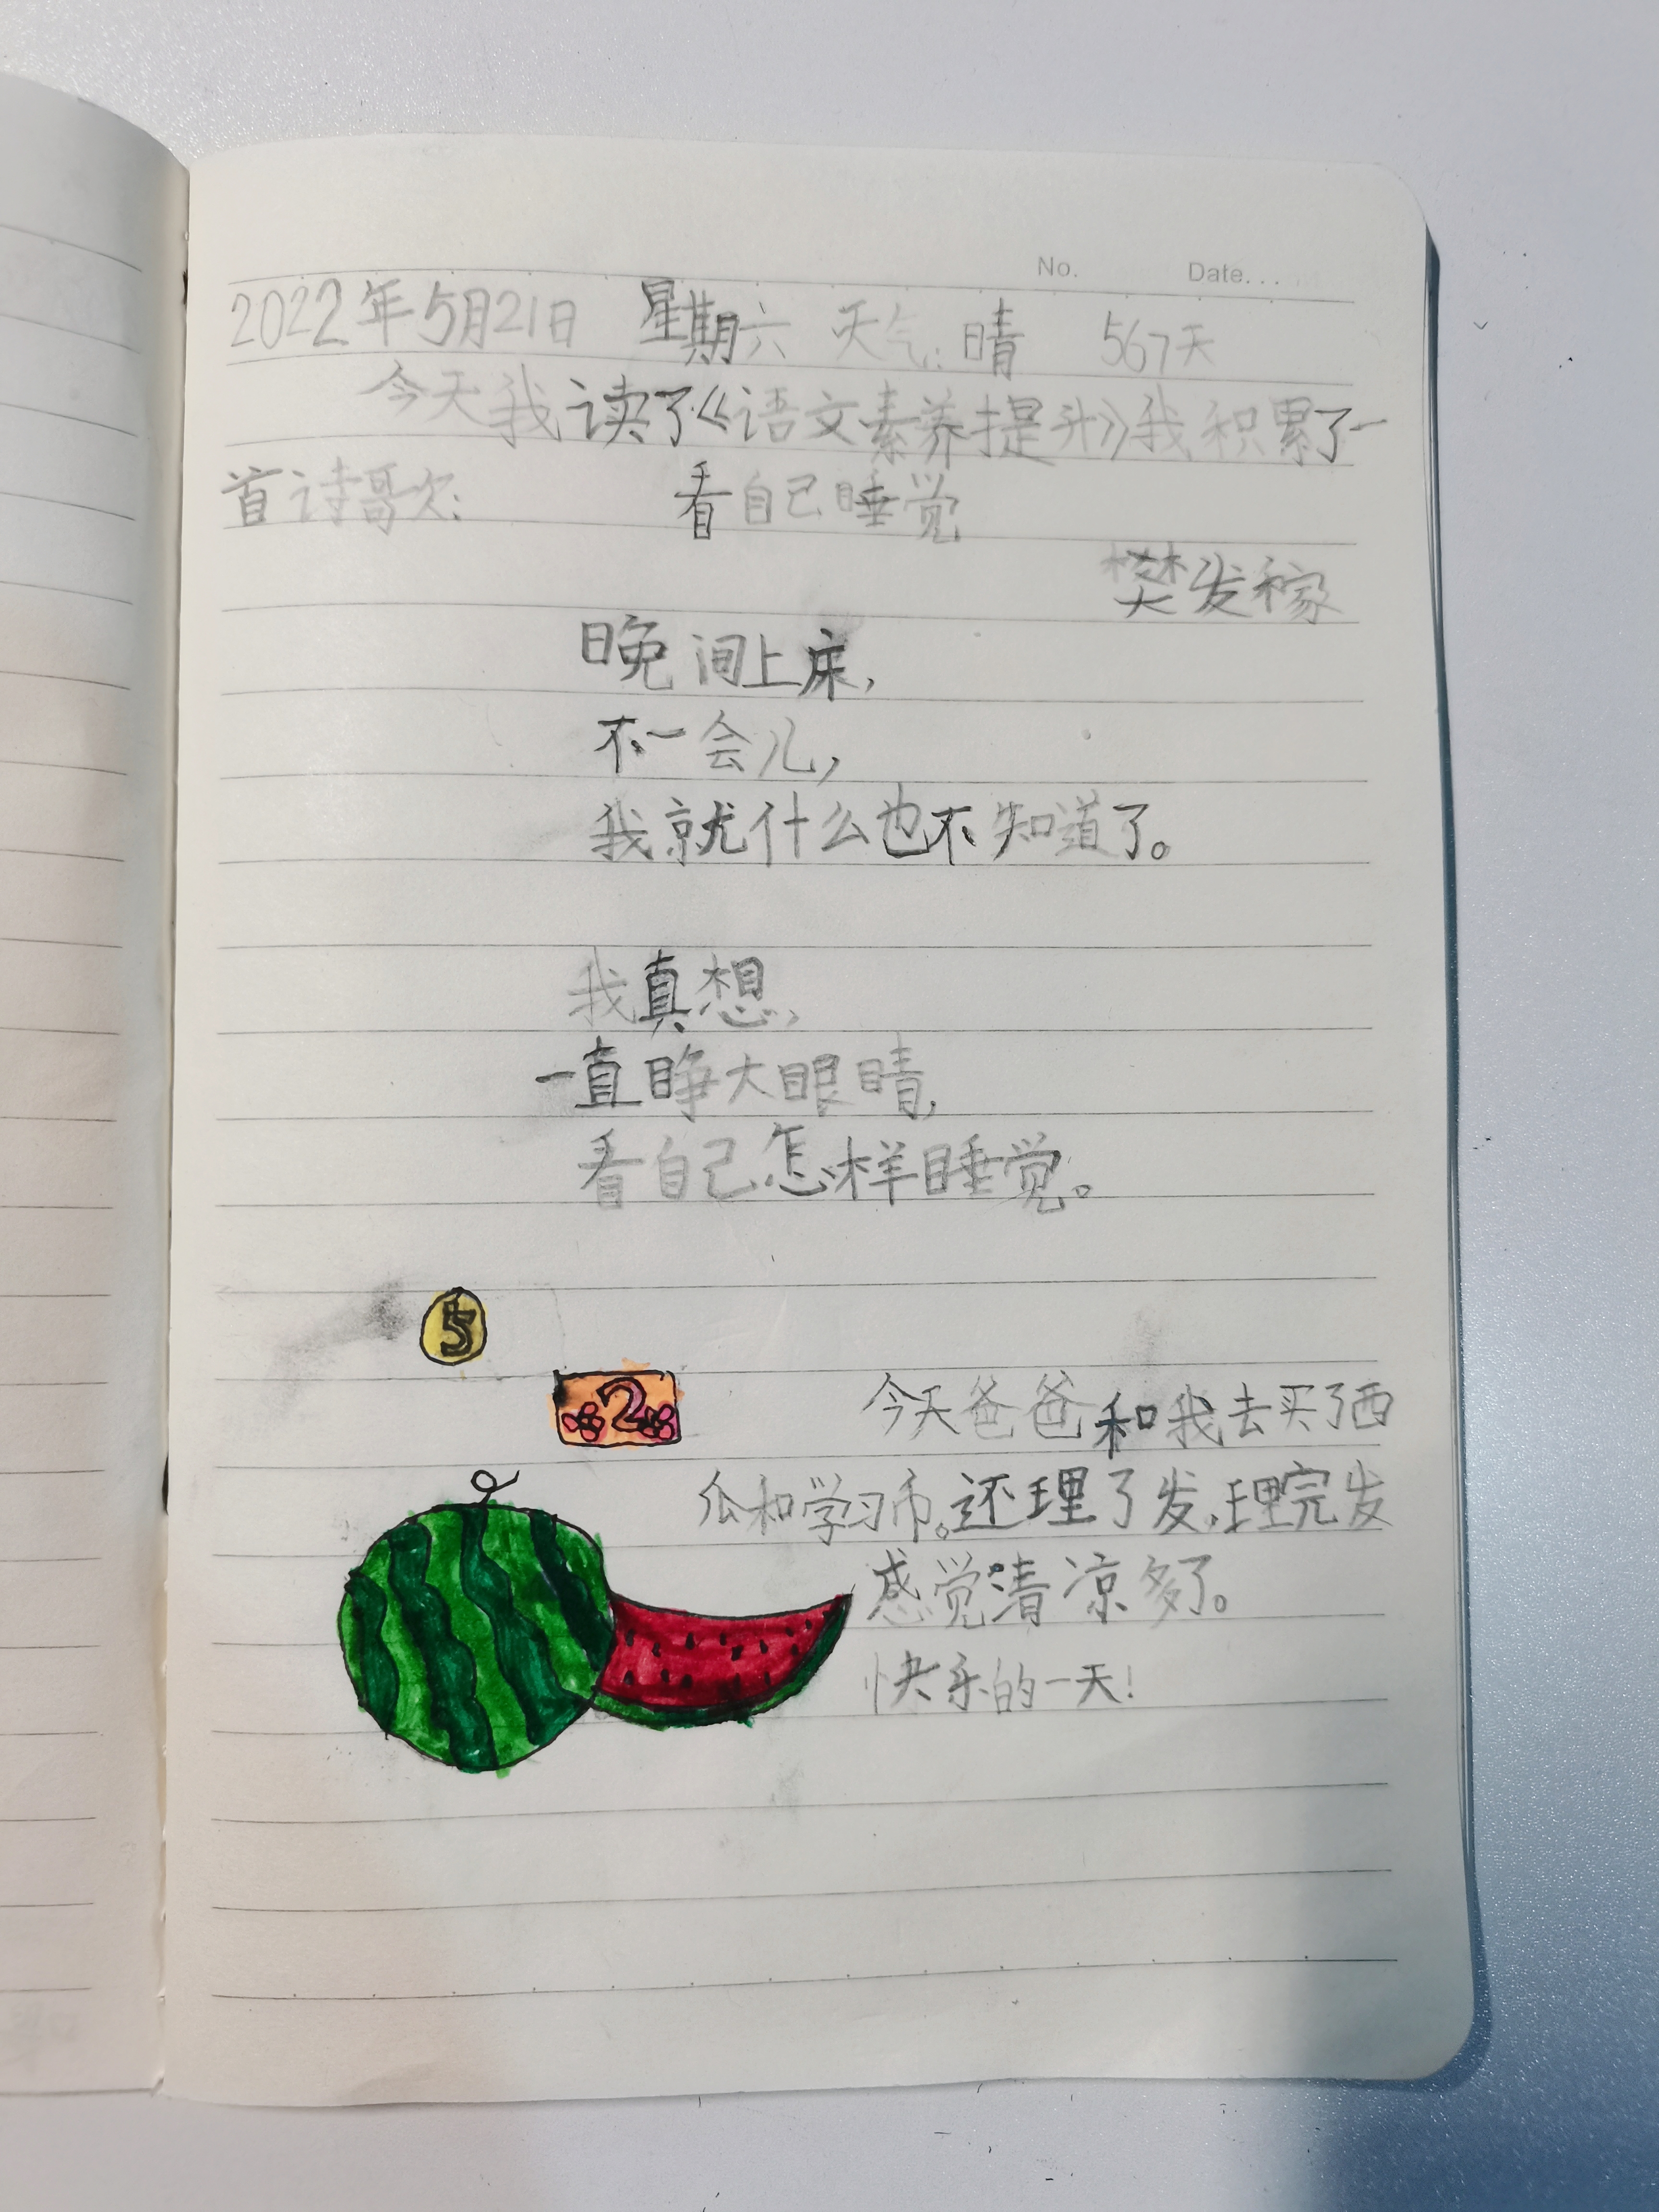 No. Date...
2022年5月21日 星期六 天气:晴 567天
今天我读了《语文素养提升》我积累了一
首诗歌: 看自己睡觉
樊发稼
晚间上床,
不一会儿,
我就什么也不知道了。
我真想,
一直睁大眼睛,
看自己怎样睡觉。
5
2
今天爸爸和我去买了西
瓜和学习币。还理了发,理完发
感觉清凉多了。
快乐的一天!